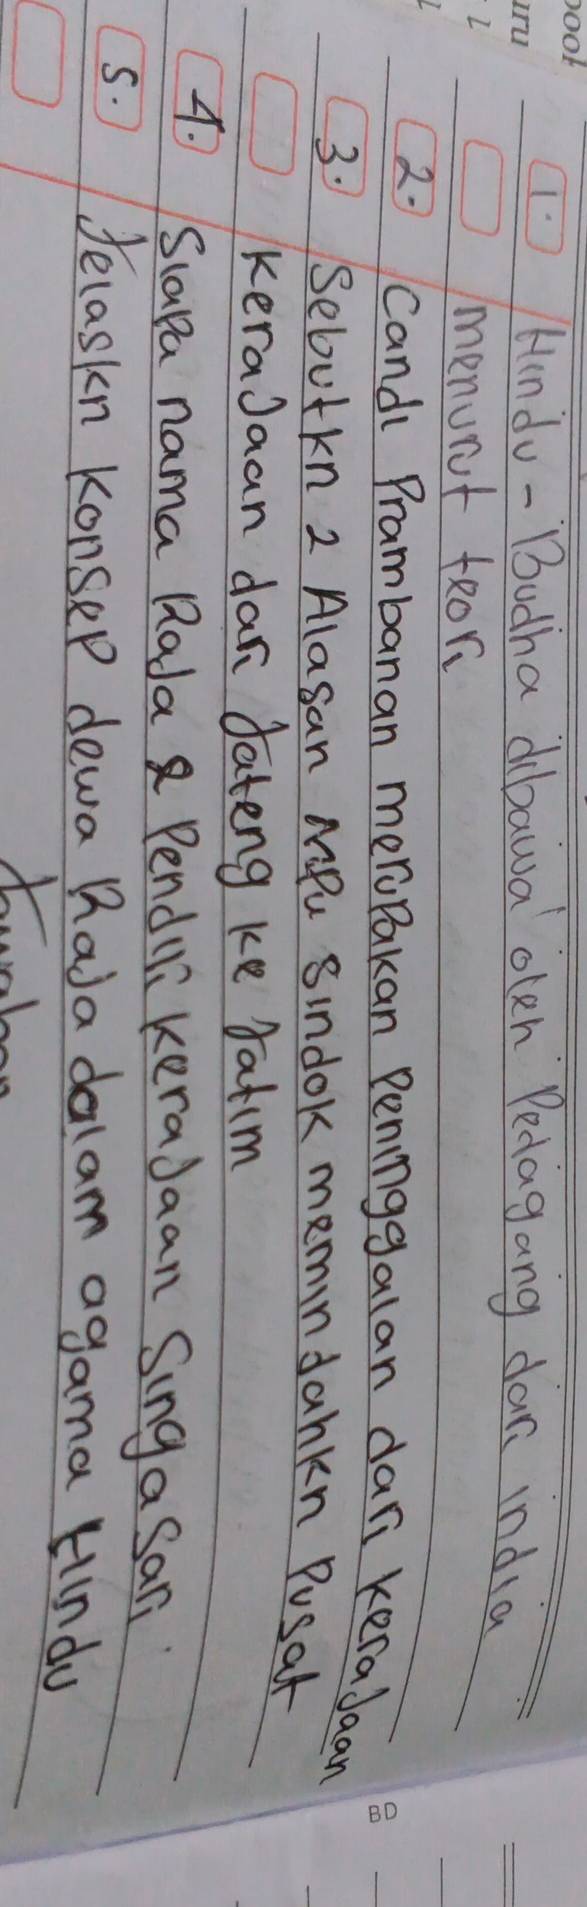 1. Hindu - Budha dibawa oleh Pedagang dari india
menurut teori
2. Candi Prambanan merupakan Peninggalan dari kerajaan
3. Sebutkn 2 Alasan MPu Sindok memindahkn Pusat
kerajaan dari Jateng ke Jatim
4. Siapa nama Raja & Pendiri kerajaan Singasari
5. Jelaskn Konsep dewa Raja dalam agama Hindu
BD